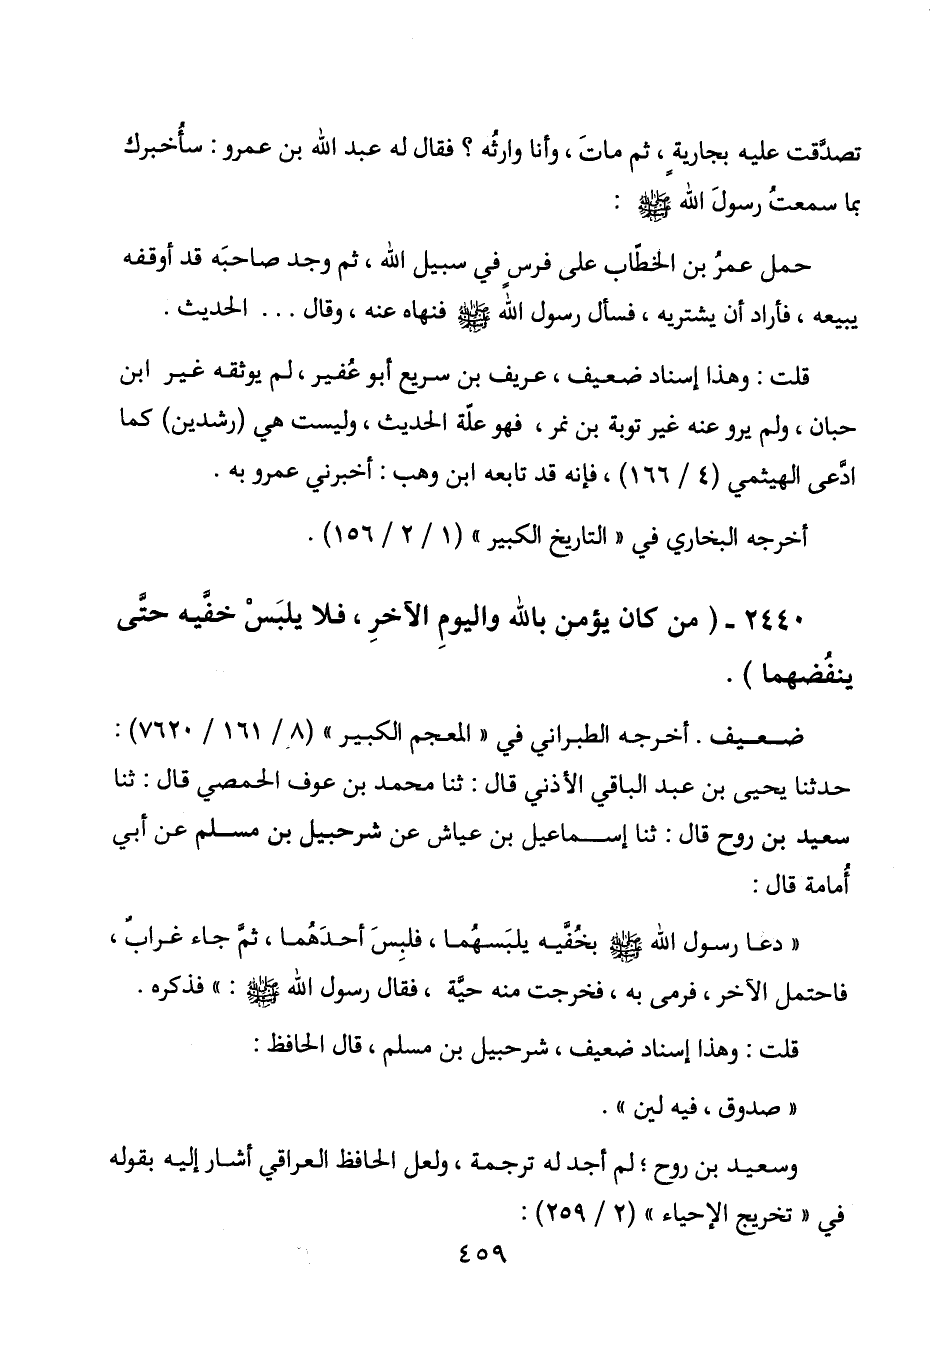 تصدَّقت عليه بجاريةٍ ، ثم ماتَ ، وأنا وارثُه ؟ فقال له عبد الله بن عمرو : سأُخبرك
بما سمعتُ رسولَ الله ﷺ :
حمل عمرُ بن الخطّاب على فرسٍ في سبيل الله ، ثم وجد صاحبَه قد أوقفه
يبيعه ، فأراد أن يشتريه ، فسأل رسول الله ﷺ فنهاه عنه ، وقال ... الحديث .
قلت : وهذا إسناد ضعيف ، عريف بن سريع أبو عُفير ، لم يوثقه غير ابن
حبان ، ولم يرو عنه غير توبة بن نمر ، فهو علّة الحديث ، وليست هي (رشدين) كما
ادَّعى الهيثمي (٤ / ١٦٦) ، فإنه قد تابعه ابن وهب : أخبرني عمرو به .
أخرجه البخاري في « التاريخ الكبير » (١ / ٢ / ١٥٦) .
٢٤٤٠ ـ ( من كان يؤمن بالله واليومِ الآخرِ ، فلا يلبَسْ خفَّيه حتَّى
ينفُضهما ) .
ضعيف . أخرجه الطبراني في « المعجم الكبير » (٨ / ١٦١ / ٧٦٢٠) :
حدثنا يحيى بن عبد الباقي الأذني قال : ثنا محمد بن عوف الحمصي قال : ثنا
سعيد بن روح قال : ثنا إسماعيل بن عياش عن شرحبيل بن مسلم عن أبي
أُمامة قال :
« دعا رسول الله ﷺ بخُفَّيه يلبَسهُما ، فلبِسَ أحدَهُما ، ثمَّ جاء غرابٌ ،
فاحتمل الآخر ، فرمى به ، فخرجت منه حيَّة ، فقال رسول الله ﷺ : » فذكره .
قلت : وهذا إسناد ضعيف ، شرحبيل بن مسلم ، قال الحافظ :
« صدوق ، فيه لين » .
وسعيد بن روح ؛ لم أجد له ترجمة ، ولعل الحافظ العراقي أشار إليه بقوله
في « تخريج الإحياء » (٢ / ٢٥٩) :
٤٥٩